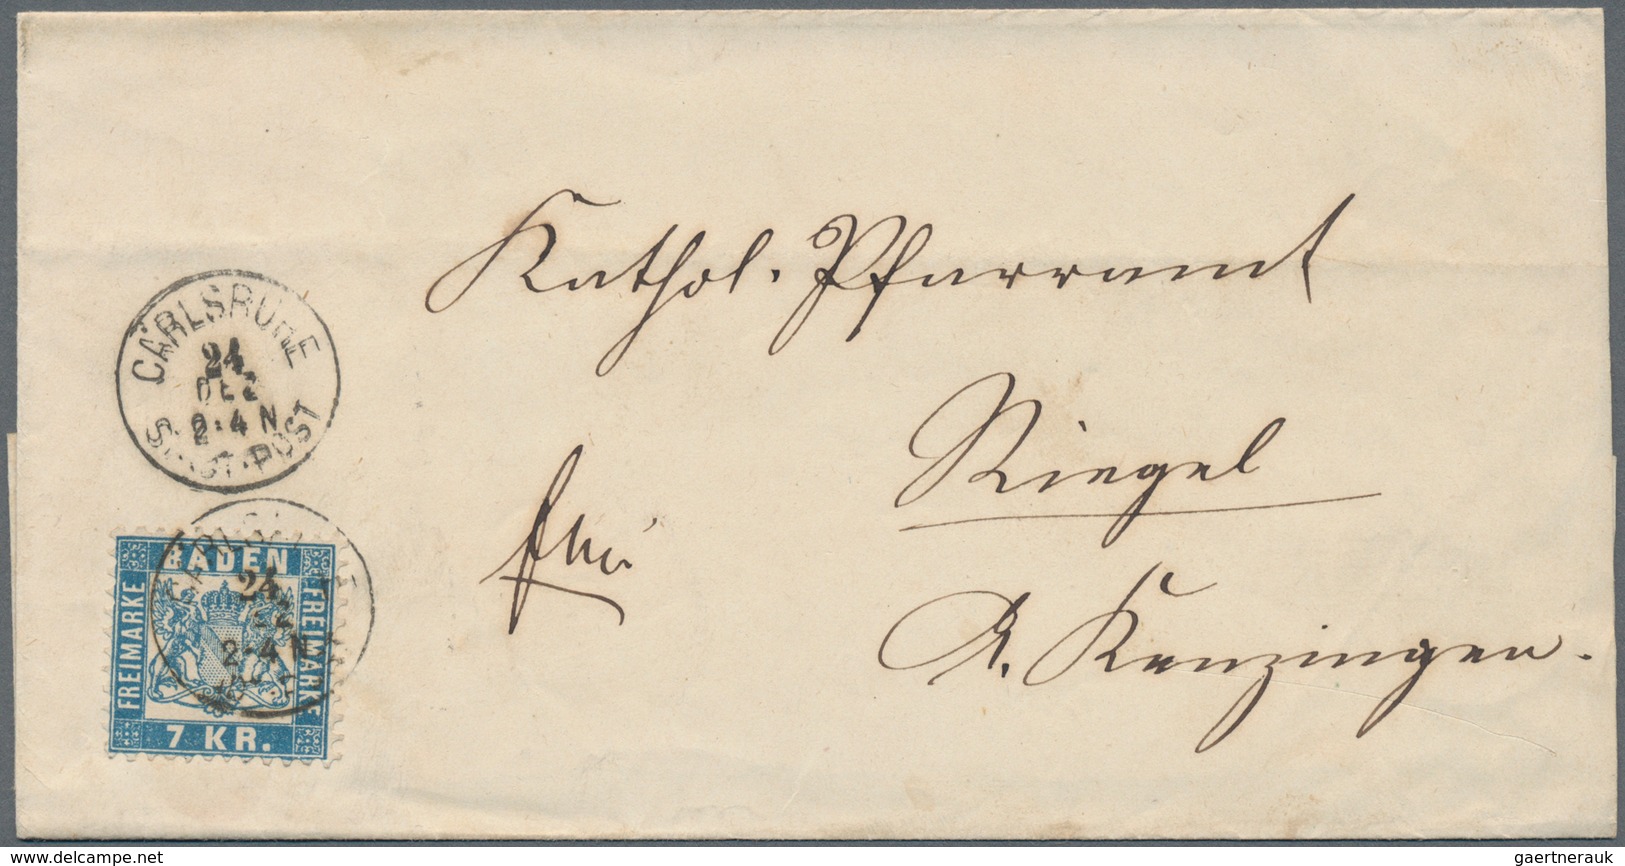 Kathol. Pfarramt
CARLSRUHE
24
DEZ
2·4 N
STADT·POST
Riegel
frei
A. Kenzingen.
BADEN
FREIMARKE
FREIMARKE
7 KR.
24
2-4 N
delcampe.net
gaertnerauk